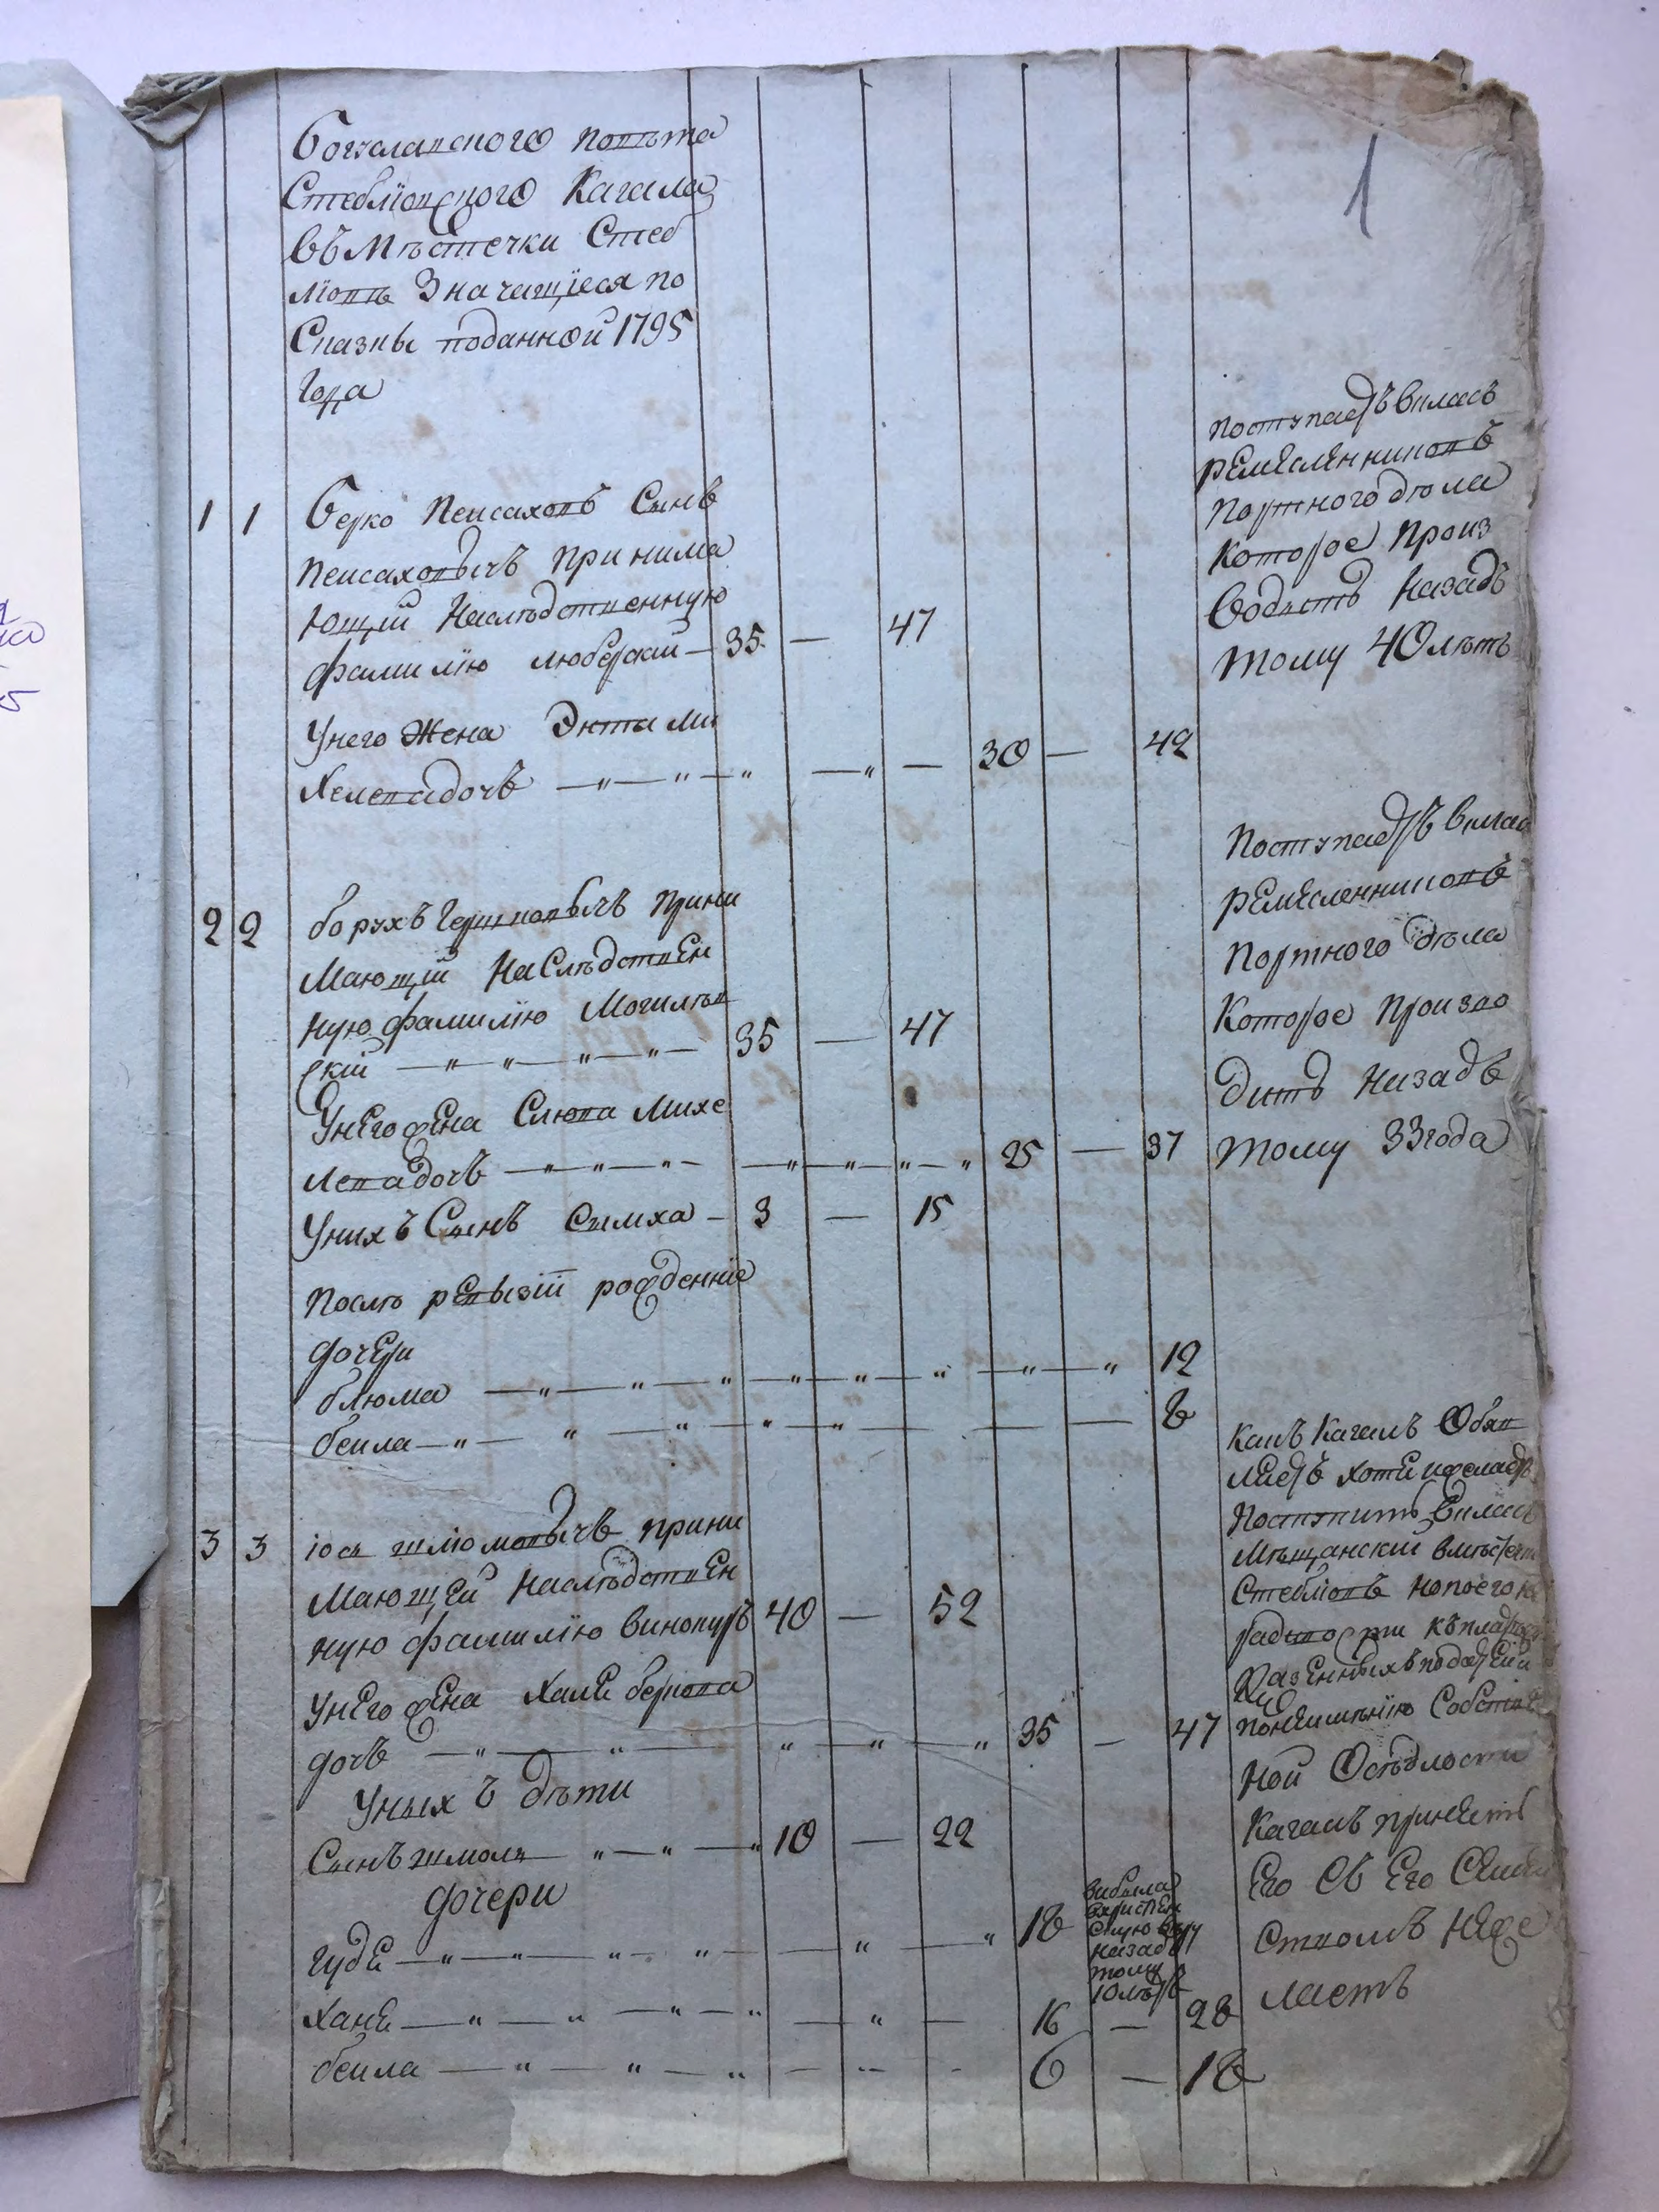 1
Богуславского повѣта
Стеблїовского Кагала
въ Мѣстечки Стеб
лїовѣ Значащїеся по
Сказкы поданной 1795
Года
1 1 Берко Пейсаховъ Сынъ
Пейсаховычъ принима
ющїй Наслѣдственную
фамилїю люберскїй — 35 — 47
Унего Жена Энта Ми
Хелевадочъ — 30 — 42
поступаетъ вкласъ
ремесленниковъ
Портного дѣла
которое Произ
водытъ Назадъ
тому 40 лѣтъ
2 2 борухъ Гершковычъ прини
мающїй Наслѣдствен
ную фамилїю Могилѣв
скїй — 35 — 47
Унего жена Слюва Михе
левадочъ — 25 — 37
Унихъ Сынъ Сымха — 3 — 15
Послѣ ревызїй рожденнїе
дочери
блюма — 12
бейла — 8
Поступаетъ вклас
ремесленниковъ
Портного дѣла
Которое Произво
дитъ Назадъ
тому 33 года
3 3 іось шлїомовычъ прини
мающей Наслѣдствен
ную фамилїю винокуръ 40 — 52
Унего жена Хаие беркова
дочъ — 35 — 47
Уныхъ дѣти
Сынъ шмоль — 10 — 22
дочери
гуде — 18
выбыла
вхристїян
скую вѣру
назадъ
тому
10 лѣтъ
Хане — 16 — 28
бейла — 6 — 18
Какъ Кагалъ Объяв
ляетъ хоте и желаетъ
Поступить вкласъ
Мѣщанскїй вмѣстечк
Стеблїовѣ но
Казенныхъ податей и
понеимѣнїю Собствен
ной Осѣдлости
Кагалъ принять
Его Съ Его Семей
Ствомъ Неже
лаетъ